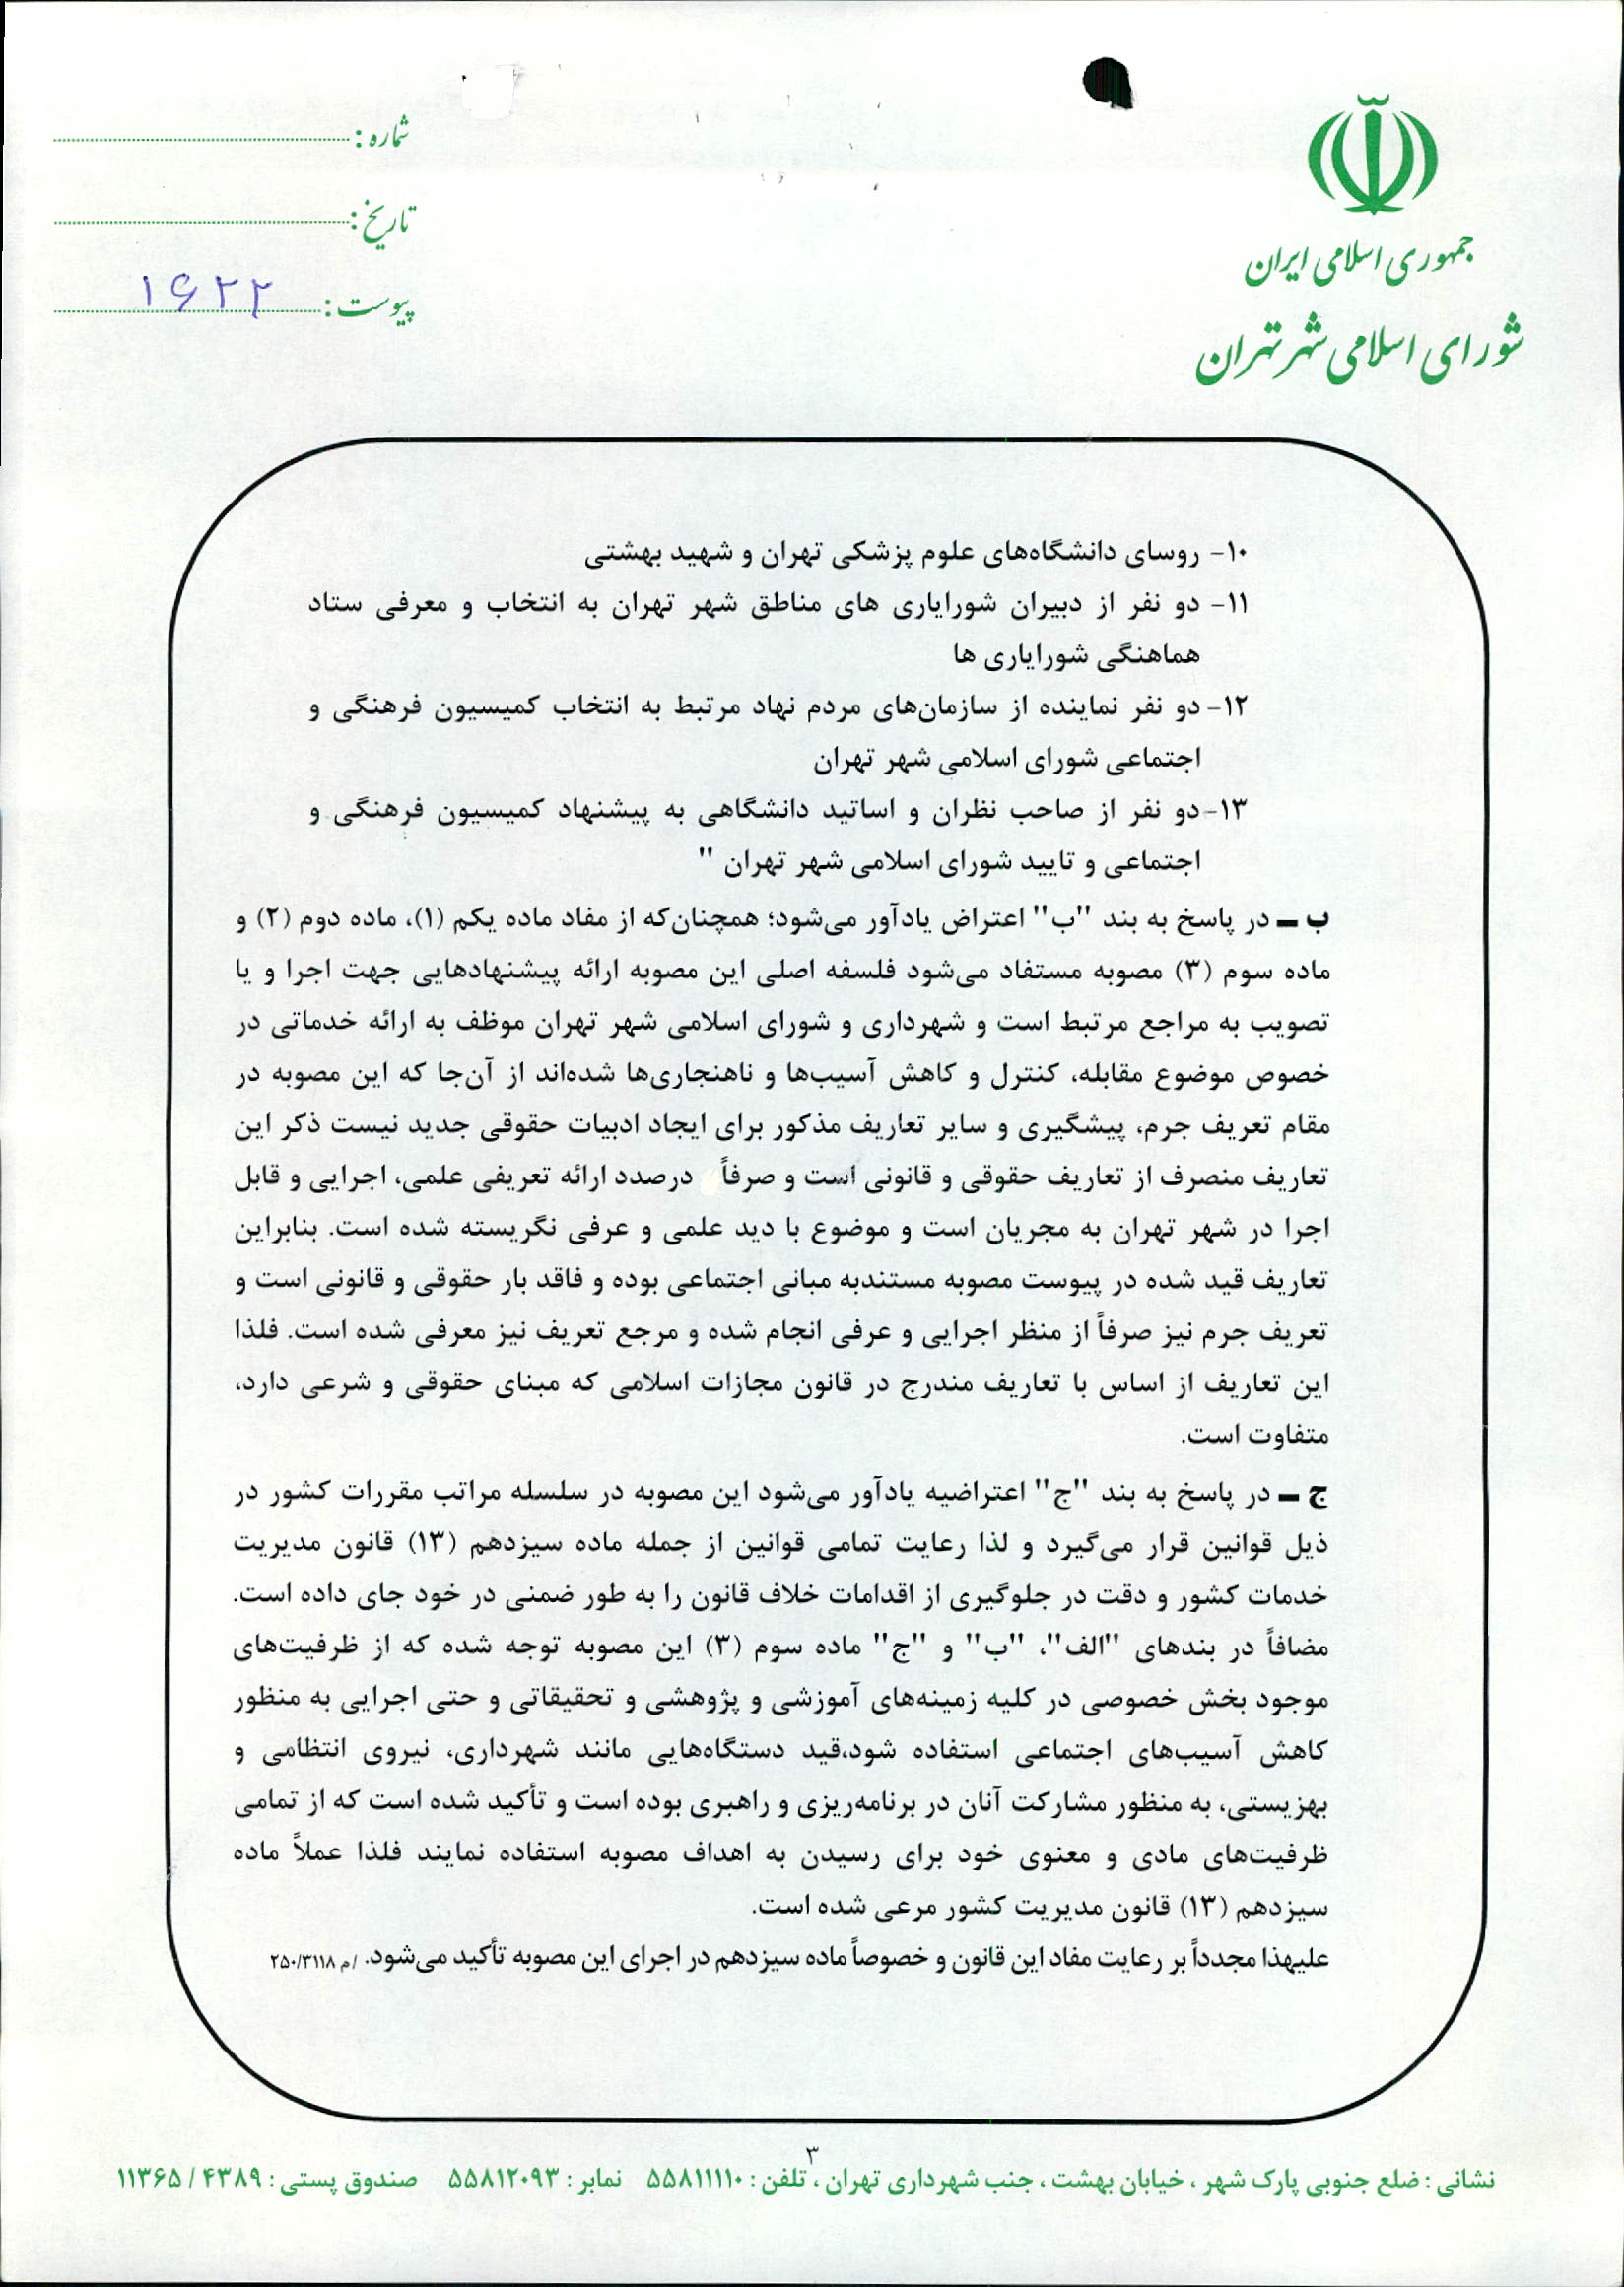 جمهوری اسلامی ایران
شورای اسلامی شهر تهران
شماره :
تاریخ :
پیوست : ۱۶۲۲
۱۰- روسای دانشگاه‌های علوم پزشکی تهران و شهید بهشتی
۱۱- دو نفر از دبیران شورایاری های مناطق شهر تهران به انتخاب و معرفی ستاد
هماهنگی شورایاری ها
۱۲- دو نفر نماینده از سازمان‌های مردم نهاد مرتبط به انتخاب کمیسیون فرهنگی و
اجتماعی شورای اسلامی شهر تهران
۱۳- دو نفر از صاحب نظران و اساتید دانشگاهی به پیشنهاد کمیسیون فرهنگی و
اجتماعی و تایید شورای اسلامی شهر تهران "
ب ـ در پاسخ به بند "ب" اعتراض یادآور می‌شود؛ همچنان‌که از مفاد ماده یکم (۱)، ماده دوم (۲) و
ماده سوم (۳) مصوبه مستفاد می‌شود فلسفه اصلی این مصوبه ارائه پیشنهادهایی جهت اجرا و یا
تصویب به مراجع مرتبط است و شهرداری و شورای اسلامی شهر تهران موظف به ارائه خدماتی در
خصوص موضوع مقابله، کنترل و کاهش آسیب‌ها و ناهنجاری‌ها شده‌اند از آن‌جا که این مصوبه در
مقام تعریف جرم، پیشگیری و سایر تعاریف مذکور برای ایجاد ادبیات حقوقی جدید نیست ذکر این
تعاریف منصرف از تعاریف حقوقی و قانونی است و صرفاً درصدد ارائه تعریفی علمی، اجرایی و قابل
اجرا در شهر تهران به مجریان است و موضوع با دید علمی و عرفی نگریسته شده است. بنابراین
تعاریف قید شده در پیوست مصوبه مستندبه مبانی اجتماعی بوده و فاقد بار حقوقی و قانونی است و
تعریف جرم نیز صرفاً از منظر اجرایی و عرفی انجام شده و مرجع تعریف نیز معرفی شده است. فلذا
این تعاریف از اساس با تعاریف مندرج در قانون مجازات اسلامی که مبنای حقوقی و شرعی دارد،
متفاوت است.
ج ـ در پاسخ به بند "ج" اعتراضیه یادآور می‌شود این مصوبه در سلسله مراتب مقررات کشور در
ذیل قوانین قرار می‌گیرد و لذا رعایت تمامی قوانین از جمله ماده سیزدهم (۱۳) قانون مدیریت
خدمات کشور و دقت در جلوگیری از اقدامات خلاف قانون را به طور ضمنی در خود جای داده است.
مضافاً در بندهای "الف"، "ب" و "ج" ماده سوم (۳) این مصوبه توجه شده که از ظرفیت‌های
موجود بخش خصوصی در کلیه زمینه‌های آموزشی و پژوهشی و تحقیقاتی و حتی اجرایی به منظور
کاهش آسیب‌های اجتماعی استفاده شود،قید دستگاه‌هایی مانند شهرداری، نیروی انتظامی و
بهزیستی، به منظور مشارکت آنان در برنامه‌ریزی و راهبری بوده است و تأکید شده است که از تمامی
ظرفیت‌های مادی و معنوی خود برای رسیدن به اهداف مصوبه استفاده نمایند فلذا عملاً ماده
سیزدهم (۱۳) قانون مدیریت کشور مرعی شده است.
علیهذا مجدداً بر رعایت مفاد این قانون و خصوصاً ماده سیزدهم در اجرای این مصوبه تأکید می‌شود. /م ۲۵۰/۳۱۱۸
۳
نشانی : ضلع جنوبی پارک شهر ، خیابان بهشت ، جنب شهرداری تهران ، تلفن : ۵۵۸۱۱۱۱۰ نمابر : ۵۵۸۱۲۰۹۳ صندوق پستی : ۴۳۸۹ / ۱۱۳۶۵